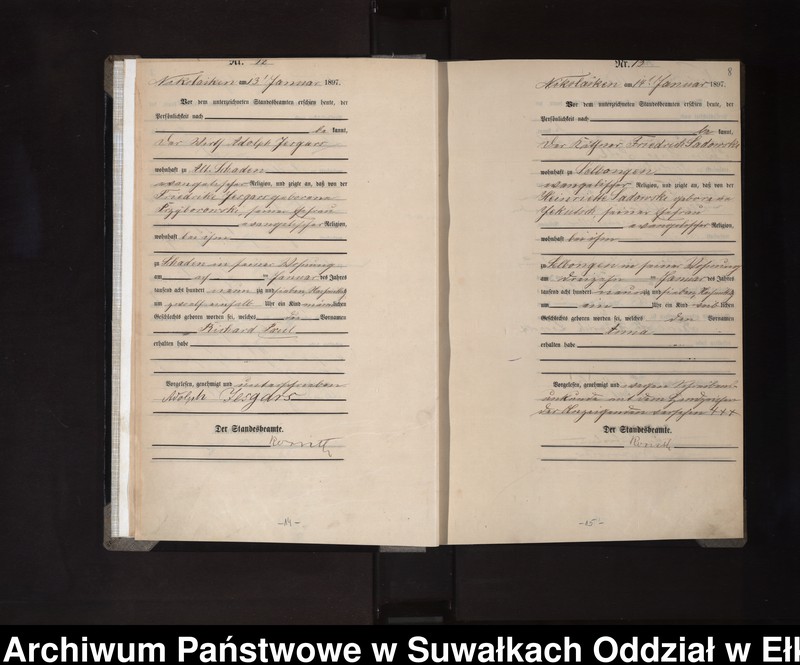 Nr. 12
Nikolaiken am 13t Januar 1897.
Vor dem unterzeichneten Standesbeamten erschien heute, der
Persönlichkeit nach
be kannt,
der Wirth Adolph Jesgars
wohnhaft zu Alt Schaden
evangelischer Religion, und zeigte an, daß von der
Friederike Jesgars geborene
Przyborowski, seiner Ehefrau
evangelischer Religion,
wohnhaft bei ihm
zu Schaden in seiner Wohnung
am Januar des Jahres
tausend acht hundert neunzig und sieben Nachmittag
um Uhr ein Kind männlichen
Geschlechts geboren worden sei, welches den Vornamen
Richard Paul
erhalten habe
Vorgelesen, genehmigt und unterschrieben
Adolph Jesgars
Der Standesbeamte.
-14-
Nr. 13
8
Nikolaiken am 14t Januar 1897.
Vor dem unterzeichneten Standesbeamten erschien heute, der
Persönlichkeit nach
be kannt,
der Käthner Friedrich Sadowski
wohnhaft zu Selbongen
evangelischer Religion, und zeigte an, daß von der
Heinriette Sadowski geborene
seiner Ehefrau
evangelischer Religion,
wohnhaft bei ihm
zu Selbongen in seiner Wohnung
am Januar des Jahres
tausend acht hundert neunzig und sieben Nachmittag
um ein Uhr ein Kind weiblichen
Geschlechts geboren worden sei, welches den Vornamen
Anna
erhalten habe
Vorgelesen, genehmigt und wegen Schreibens-
unkunde mit dem Handzeichen
des Anzeigenden versehen +++
Der Standesbeamte.
-15-
Archiwum Państwowe w Suwałkach Oddział w Ełk